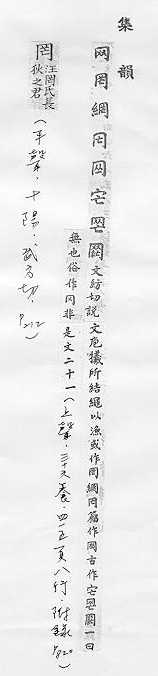 集韻
网罔網文紡切說文庖犧所結繩以漁或作罔網籀作古作一曰
無也俗作非是文二十一（上聲．三十六養．四一五頁八行．附錄
罔汪罔氏長
狄之君
（平聲．十陽．武方切．P212）